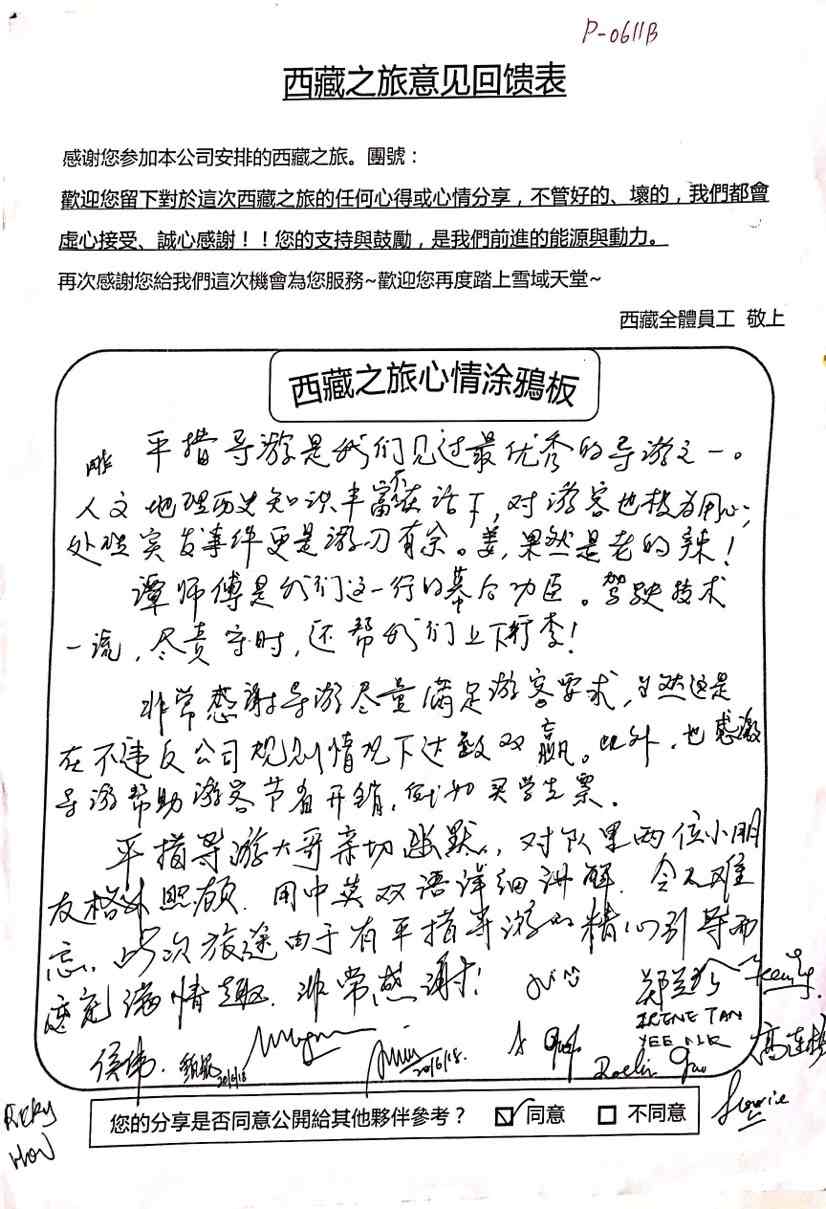 P-0611B
西藏之旅意见回馈表
感谢您参加本公司安排的西藏之旅。團號：
歡迎您留下對於這次西藏之旅的任何心得或心情分享，不管好的、壞的，我們都會
虛心接受、誠心感謝！！您的支持與鼓勵，是我們前進的能源與動力。
再次感謝您給我們這次機會為您服務~歡迎您再度踏上雪域天堂~
西藏全體員工 敬上
西藏之旅心情涂鴉板
平措导游是我们见过最优秀的导游之一。
人文地理历史知识丰富不在话下，对游客也极为用心；
处理突发事件更是游刃有余。姜，果然是老的辣！
谭师傅是我们这一行的幕后功臣。驾驶技术
一流，尽责守时，还帮我们上下行李！
非常感谢导游尽量满足游客要求，当然这是
在不违反公司规则情况下达致双赢。此外，也感激
导游帮助游客节省开销，例如买学生票。
平措导游大哥亲切幽默，对队里两位小朋
友格外照顾，用中英双语详细讲解，令人难
忘，此次旅途由于有平措导游的精心引导而
充满情趣，非常感谢！
IRENE TAN
YEE NIK
侯伟
20/6/18
20/6/18.
RICKY
HOW
您的分享是否同意公開給其他夥伴參考？ ☑ 同意 □ 不同意